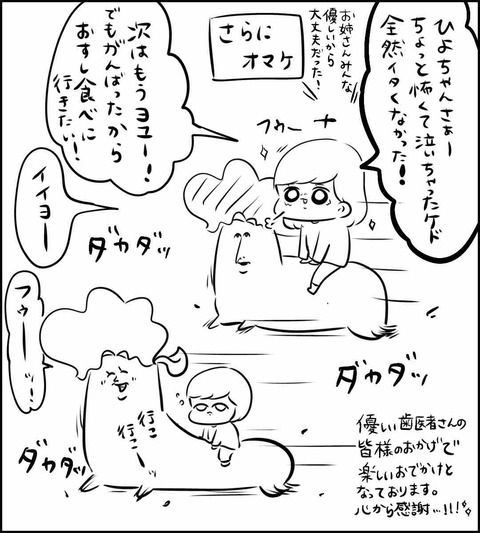 さらに
オマケ
ひよちゃんさぁー
ちょっと怖くて泣いちゃったケド
全然イタくなかった!
お姉さんみんな
優しいから
大丈夫だった!
フゥーナ
次はもうヨユー!
でもがんばったから
おすし食べに
行きたい!
イイヨー
ダカダッ
ダカダッ
フゥーッ!
行こ
行こーッ
ダカダッ
優しい歯医者さんの
皆様のおかげで
楽しいおでかけと
なっております。
心から感謝…!!!